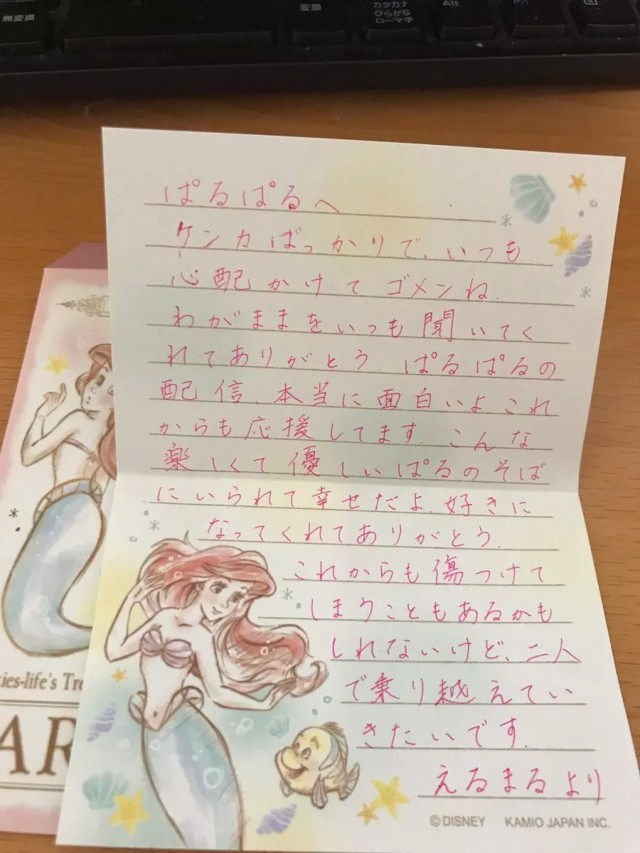 無変換
変換
カタカナ
ひらがな
ローマ字
Alt
ぱるぱるへ
ケンカばっかりで、いつも
心配かけてゴメンね.
わがままをいつも聞いてく
れてありがとう. ぱるぱるの
配信、本当に面白いよこれ
からも応援してます. こんな
楽しくて優しいぱるのそば
にいられて幸せだよ. 好きに
なってくれてありがとう.
これからも傷つけて
しまうこともあるかも
しれないけど、二人
で乗り越えてい
きたいです.
えるまるより
©DISNEY KAMIO JAPAN INC.
ies-life's Tre
AR